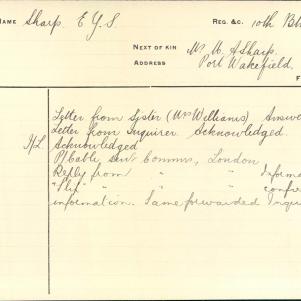 NAME Sharp. E Y S REG. &C. 10th Bt
NEXT OF KIN Mr. M. A Sharp.
ADDRESS Port Wakefield.
F
Letter from Sister (Mrs Williams) Answe
Letter from Inquirer. Acknowledged
Acknowledged
P/Cable sent Comms, London
Reply from " " Informa
"Slip" " " confir
information. Same forwarded Inqui